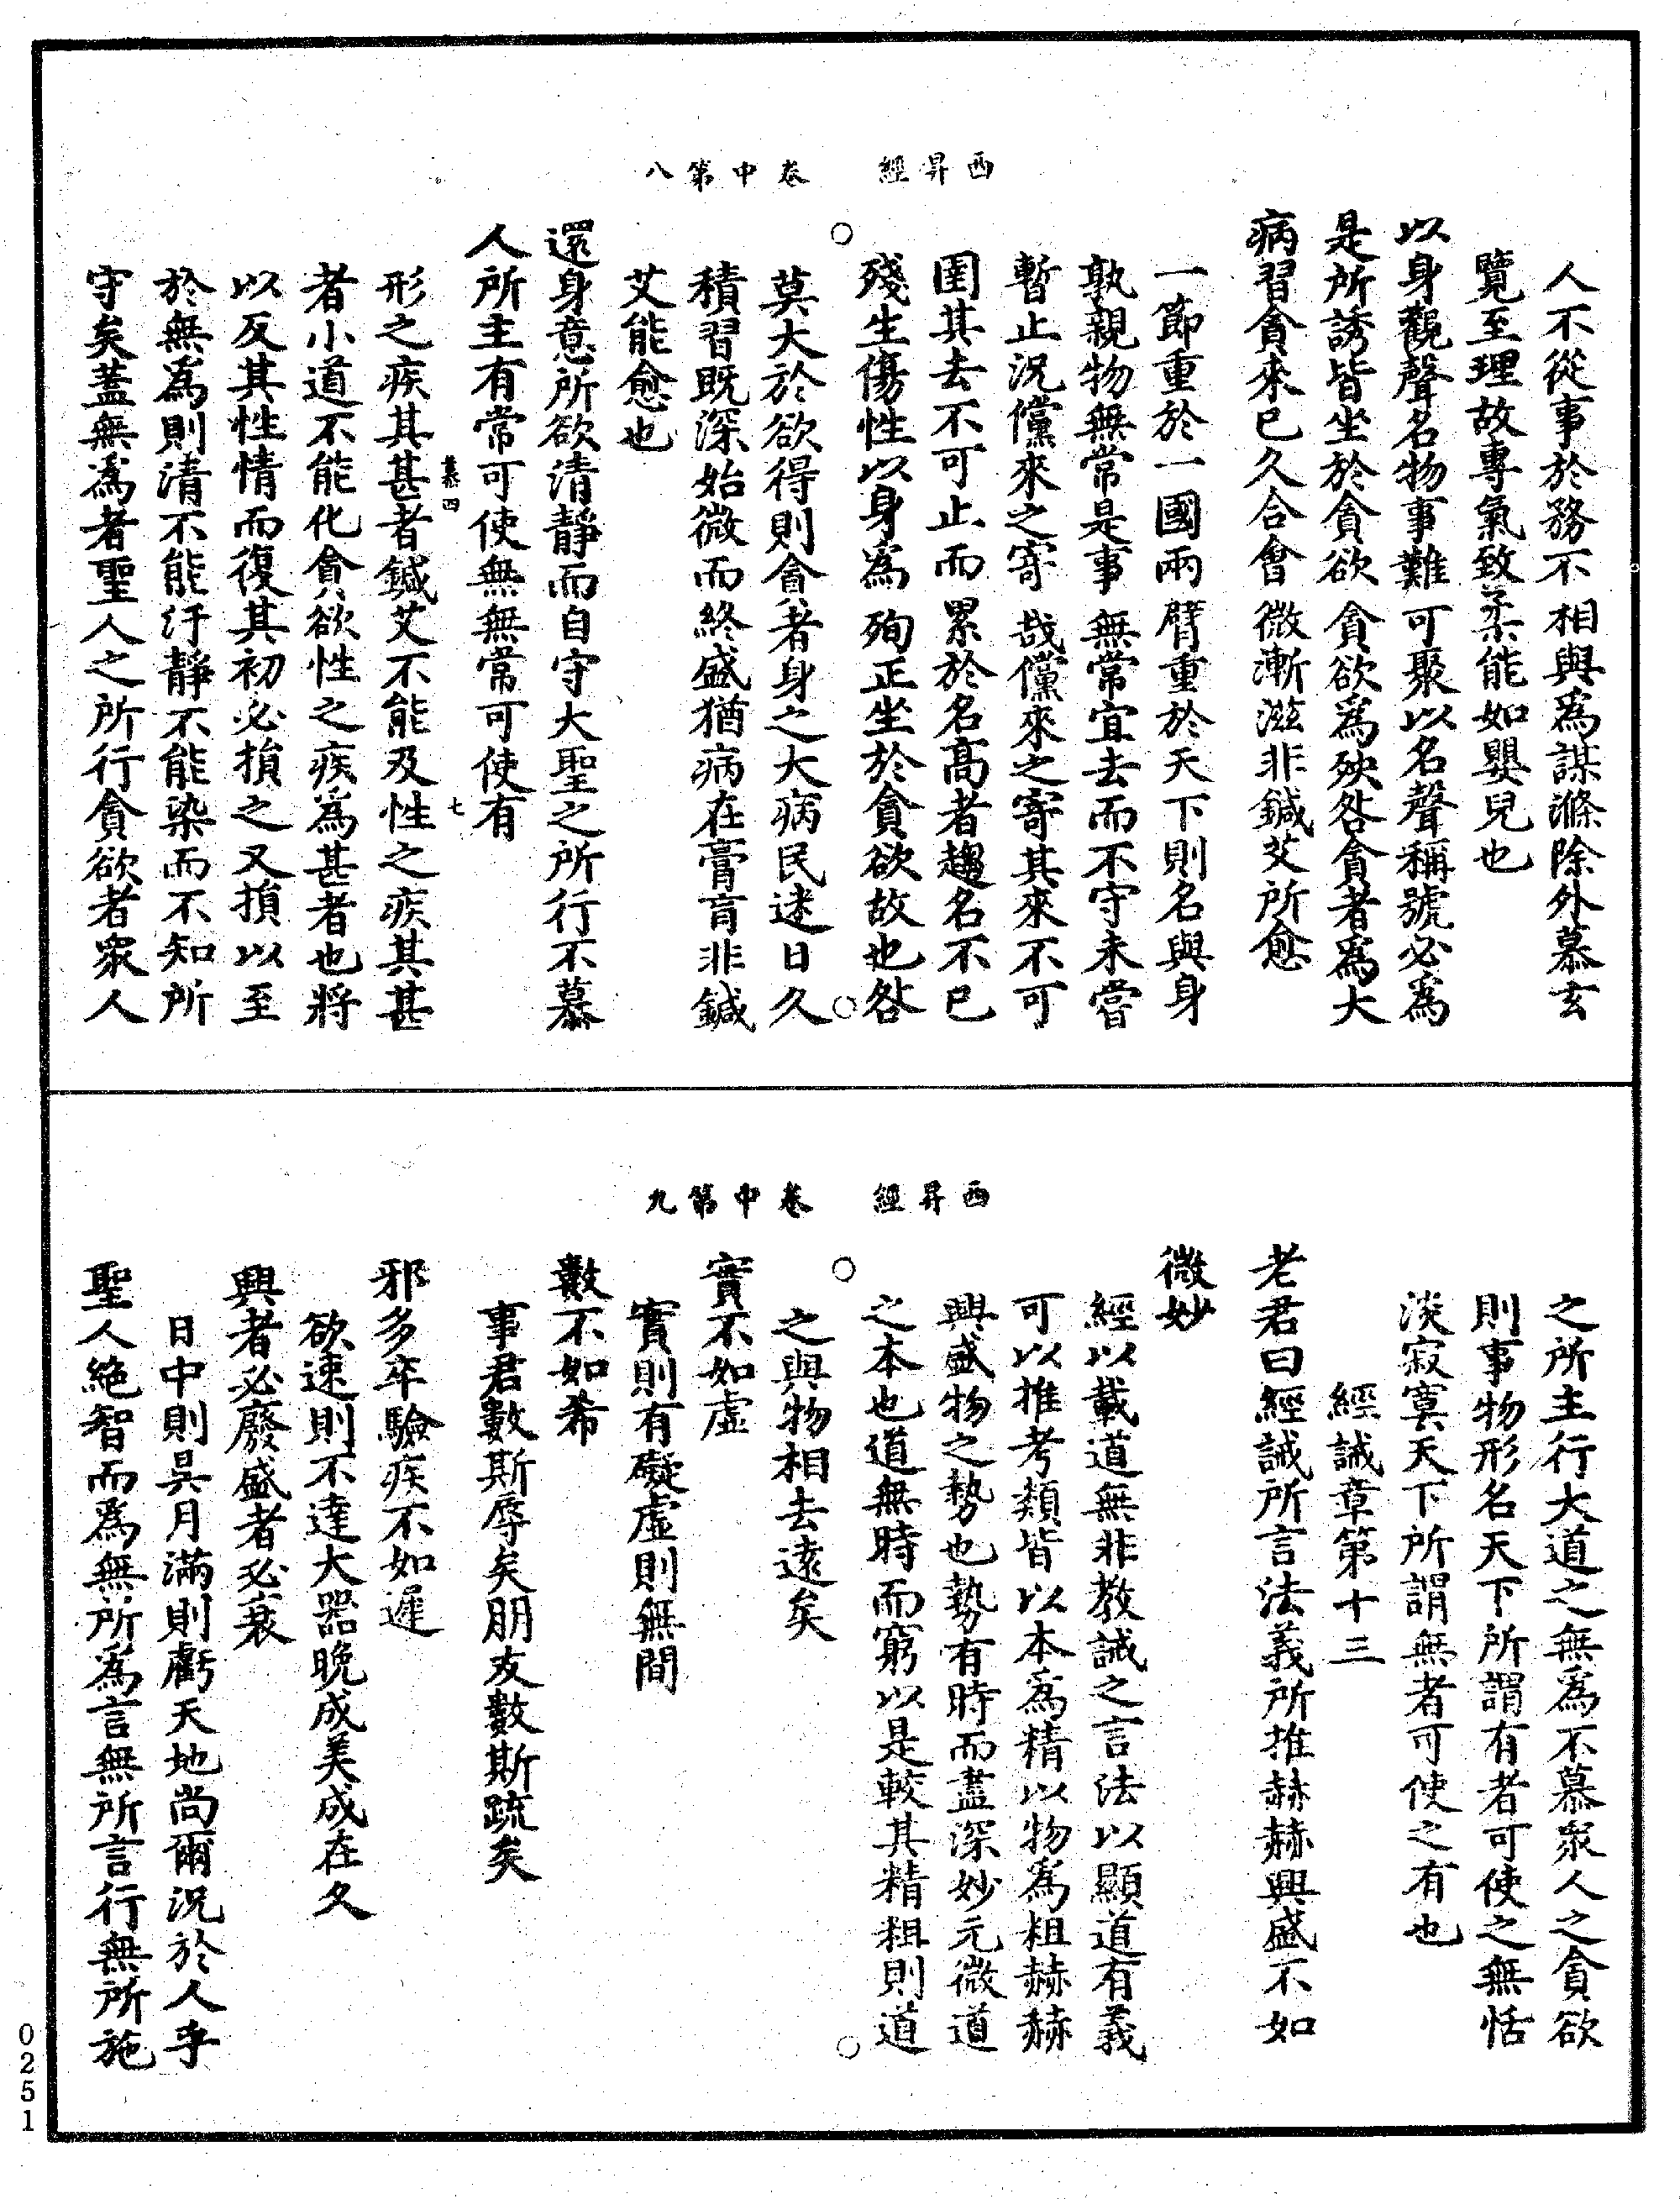 西昇經　卷中第八
人不從事於務不相與爲謀滌除外慕玄
覽至理故專氣致柔能如嬰兒也
以身觀聲名物事難可聚以名聲稱號必爲
是所誘皆坐於貪欲貪欲爲殃咎貪者爲大
病習貪來已久合會微漸滋非鍼艾所愈
一節重於一國兩臂重於天下則名與身
孰親物無常是事無常宜去而不守未嘗
暫止況儻來之寄哉儻來之寄其來不可
圉其去不可止而累於名高者趨名不已
殘生傷性以身爲殉正坐於貪欲故也咎
莫大於欲得則貪者身之大病民迷日久
積習既深始微而終盛猶病在膏肓非鍼
艾能愈也
還身意所欲清靜而自守大聖之所行不慕
人所主有常可使無無常可使有
慕四　七
形之疾其甚者鍼艾不能及性之疾其甚
者小道不能化貪欲性之疾為甚者也將
以反其性情而復其初必損之又損以至
於無為則清不能汙靜不能染而不知所
守矣蓋無爲者聖人之所行貪欲者衆人
西昇經　卷中第九
之所主行大道之無爲不慕衆人之貪欲
則事物形名天下所謂有者可使之無恬
淡寂寞天下所謂無者可使之有也
經誡章第十三
老君曰經誡所言法義所推赫赫興盛不如
微妙
經以載道無非教誡之言法以顯道有義
可以推考類皆以本爲精以物爲粗赫赫
興盛物之勢也勢有時而盡深妙元微道
之本也道無時而窮以是較其精粗則道
之與物相去遠矣
實不如虛
實則有礙虛則無間
數不如希
事君數斯辱矣朋友數斯疏矣
邪多卒驗疾不如遲
欲速則不達大器晚成美成在久
興者必廢盛者必衰
日中則昃月滿則虧天地尚爾況於人乎
聖人絶智而爲無所爲言無所言行無所施
0251